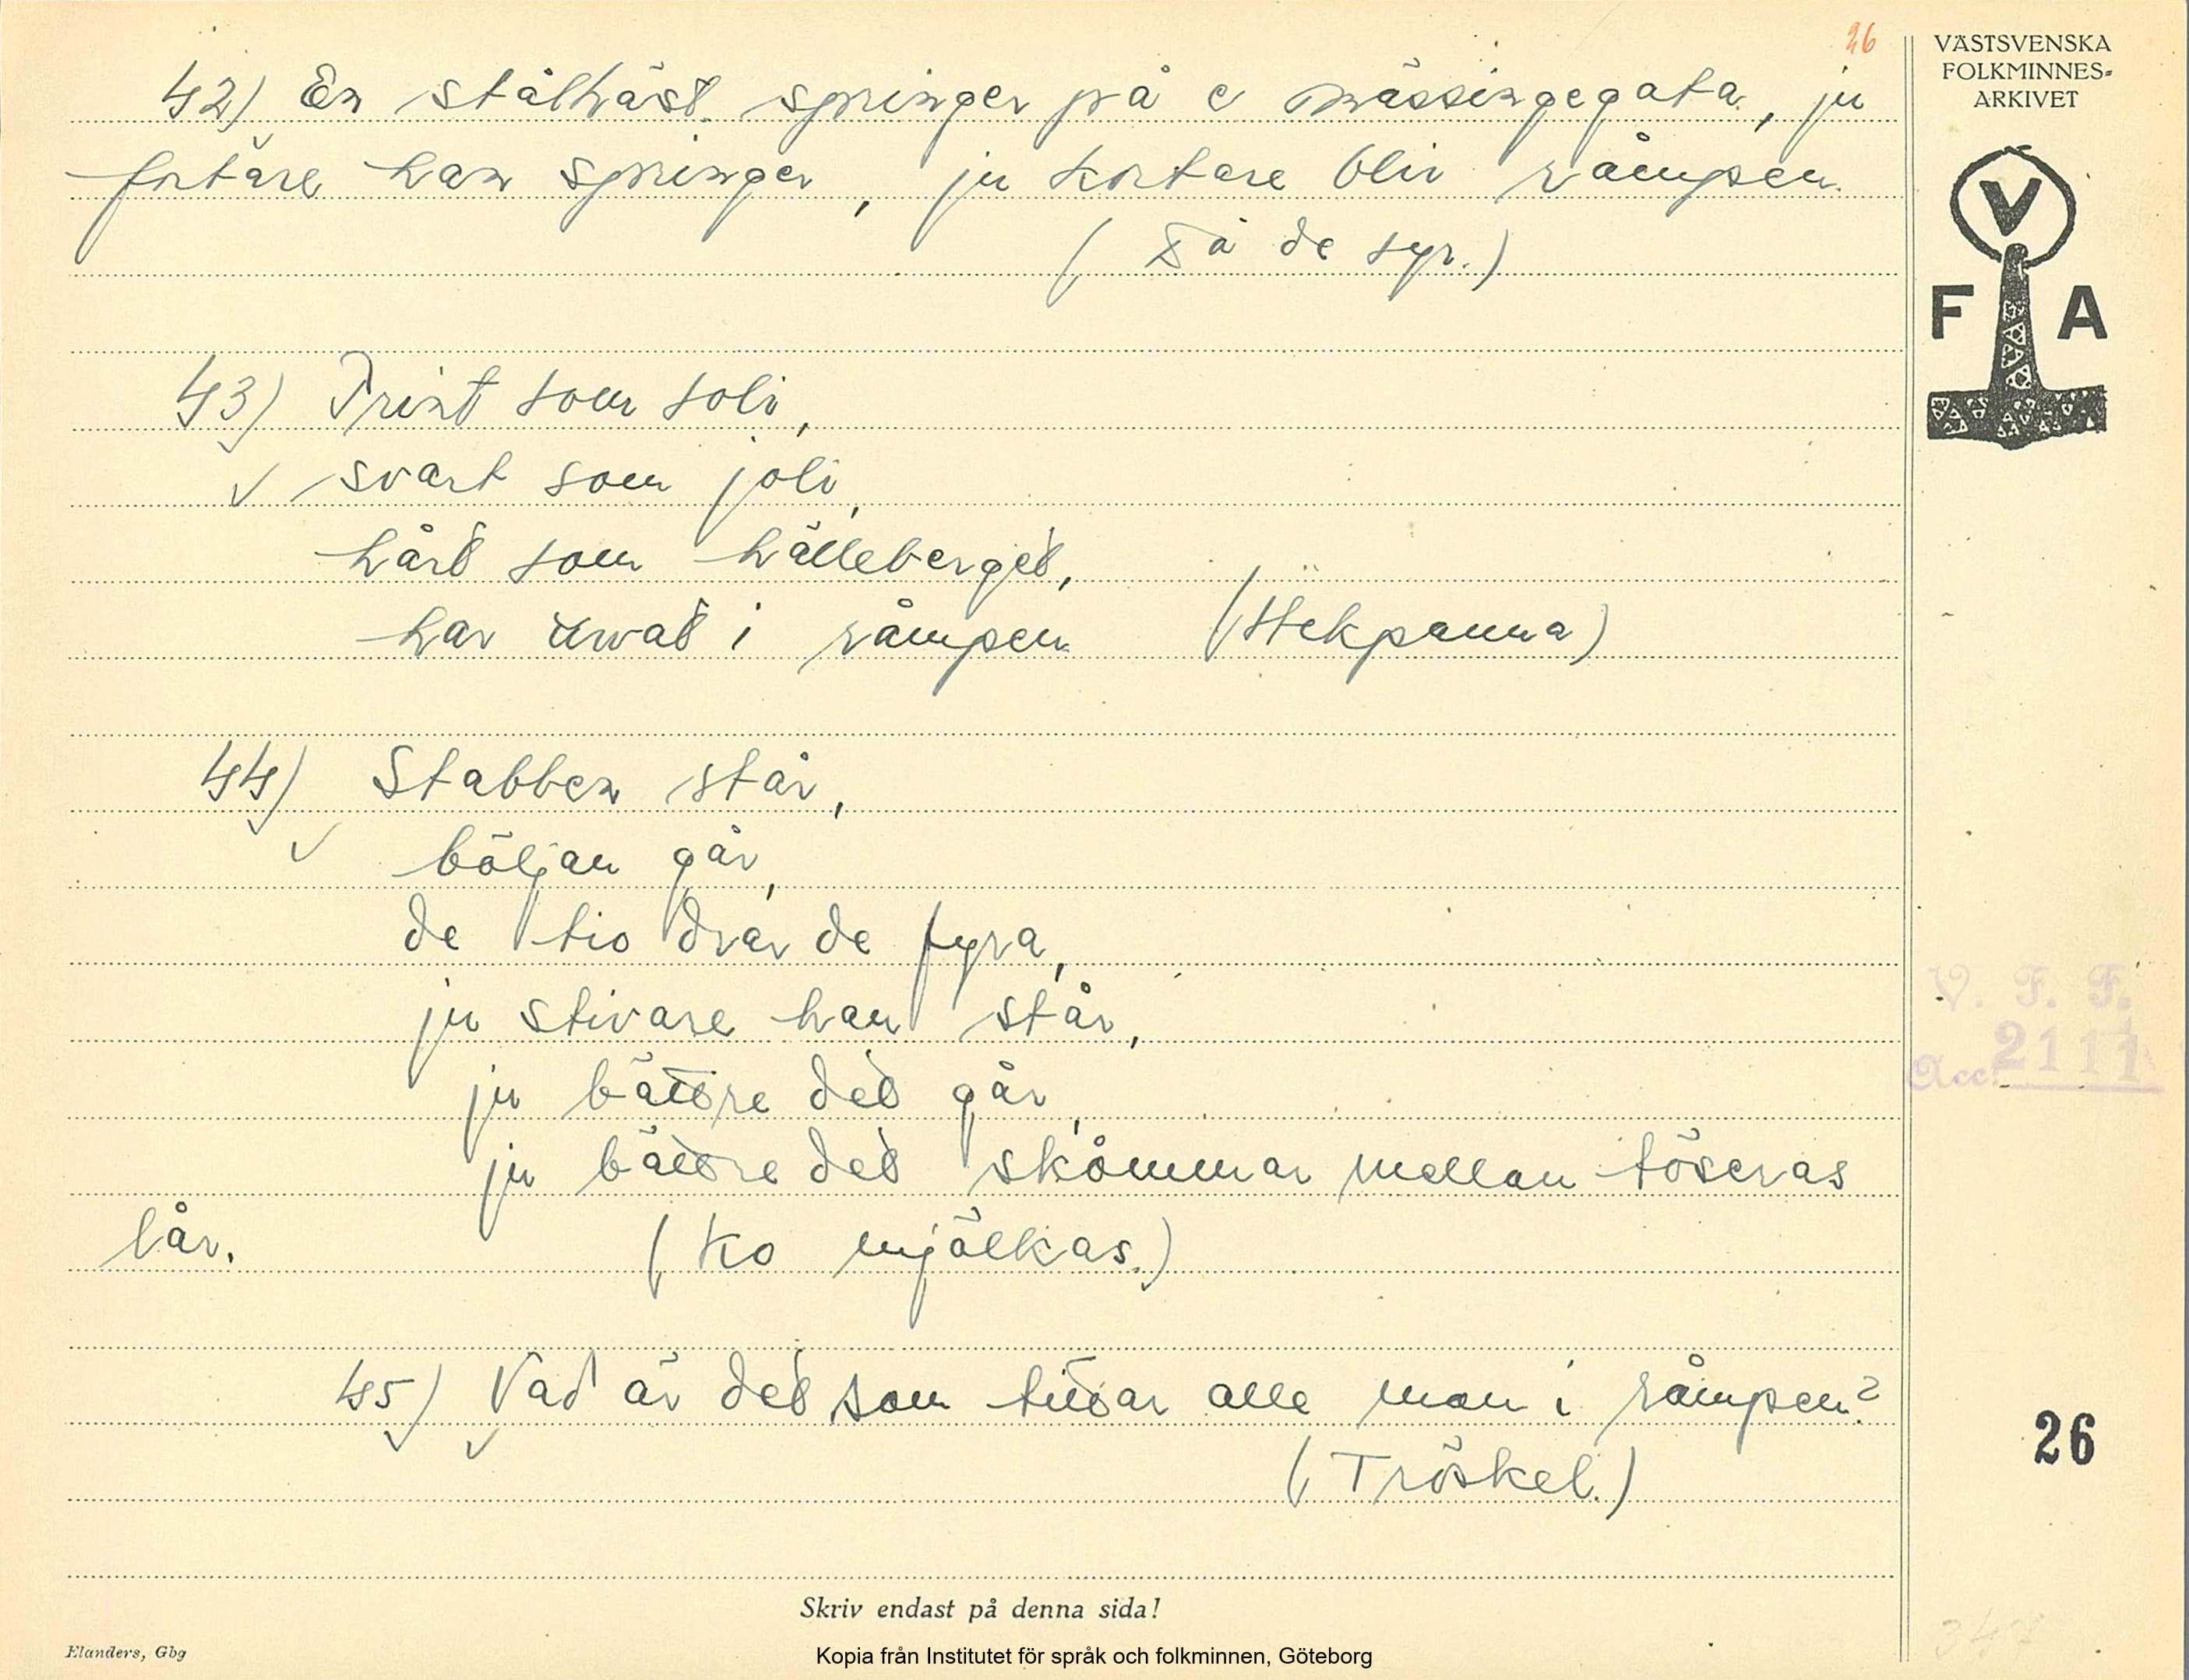 26
VÄSTSVENSKA
FOLKMINNES-
ARKIVET
V
F A
42) En stålhäst springer på e mässingegata, ju
fortare han springer, ju kortare blir råmpen.
(Då de syr.)
43) Trint som soli,
svart som joli,
hård som hälleberget,
har rwat i råmpen (Stekpanna)
44) Stabben står,
böljan går,
de tio drar de fyra,
ju stivare han står,
ju bättre det går,
ju bättre det skåmmar mellan töseras
lår. (Ko mjölkas.)
V. F. F.
Acc. 2111
45) Vad är det som tittar alle man i råmpen?
(Tröskel.)
26
Skriv endast på denna sida!
Elanders, Gbg
Kopia från Institutet för språk och folkminnen, Göteborg